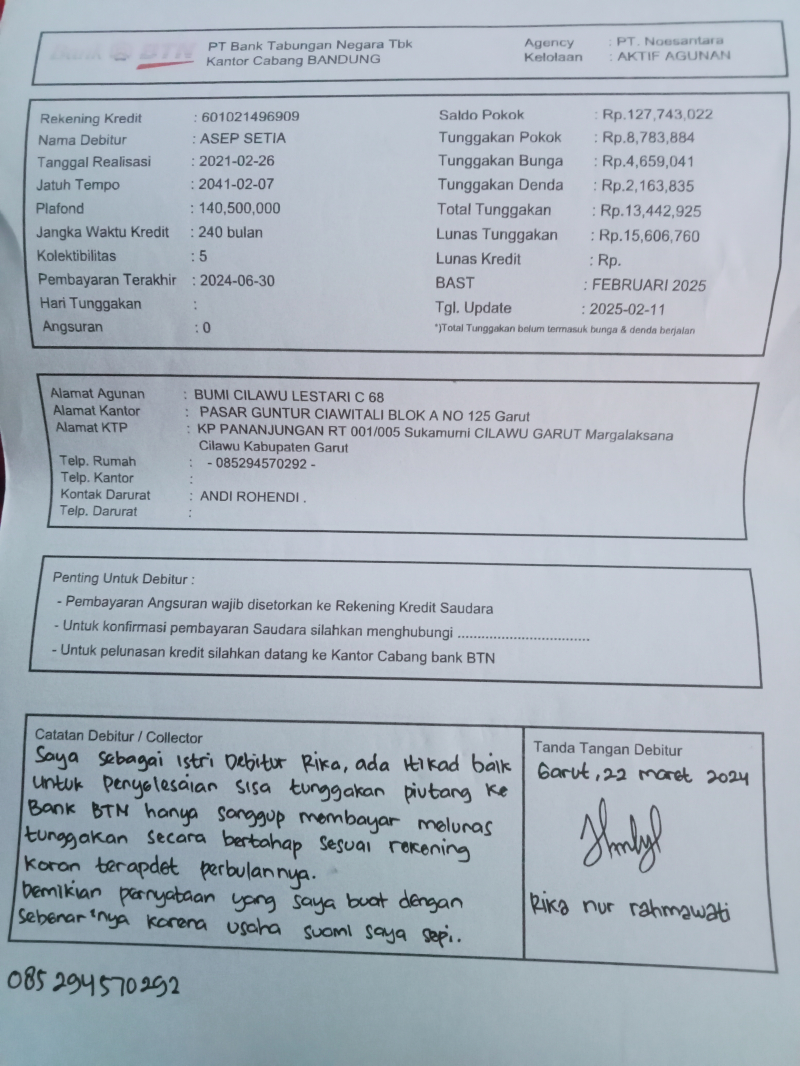 Bank BTN
PT Bank Tabungan Negara Tbk
Kantor Cabang BANDUNG
Agency : PT. Noesantara
Kelolaan : AKTIF AGUNAN
Rekening Kredit : 601021496909
Nama Debitur : ASEP SETIA
Tanggal Realisasi : 2021-02-26
Jatuh Tempo : 2041-02-07
Plafond : 140,500,000
Jangka Waktu Kredit : 240 bulan
Kolektibilitas : 5
Pembayaran Terakhir : 2024-06-30
Hari Tunggakan :
Angsuran : 0
Saldo Pokok : Rp.127,743,022
Tunggakan Pokok : Rp.8,783,884
Tunggakan Bunga : Rp.4,659,041
Tunggakan Denda : Rp.2,163,835
Total Tunggakan : Rp.13,442,925
Lunas Tunggakan : Rp.15,606,760
Lunas Kredit : Rp.
BAST : FEBRUARI 2025
Tgl. Update : 2025-02-11
*)Total Tunggakan belum termasuk bunga & denda berjalan
Alamat Agunan : BUMI CILAWU LESTARI C 68
Alamat Kantor : PASAR GUNTUR CIAWITALI BLOK A NO 125 Garut
Alamat KTP : KP PANANJUNGAN RT 001/005 Sukamurni CILAWU GARUT Margalaksana
Cilawu Kabupaten Garut
Telp. Rumah : - 085294570292 -
Telp. Kantor :
Kontak Darurat : ANDI ROHENDI .
Telp. Darurat :
Penting Untuk Debitur :
- Pembayaran Angsuran wajib disetorkan ke Rekening Kredit Saudara
- Untuk konfirmasi pembayaran Saudara silahkan menghubungi .................................
- Untuk pelunasan kredit silahkan datang ke Kantor Cabang bank BTN
Catatan Debitur / Collector
Saya sebagai Istri Debitur Rika, ada itikad baik
untuk penyelesaian sisa tunggakan piutang ke
Bank BTN hanya sanggup membayar melunas
tunggakan secara bertahap sesuai rekening
koran terapdet perbulannya.
Demikian pernyataan yang saya buat dengan
sebenar"nya karena usaha suami saya sepi..
Tanda Tangan Debitur
Garut, 22 maret 2024
Rika nur rahmawati
085 294570292